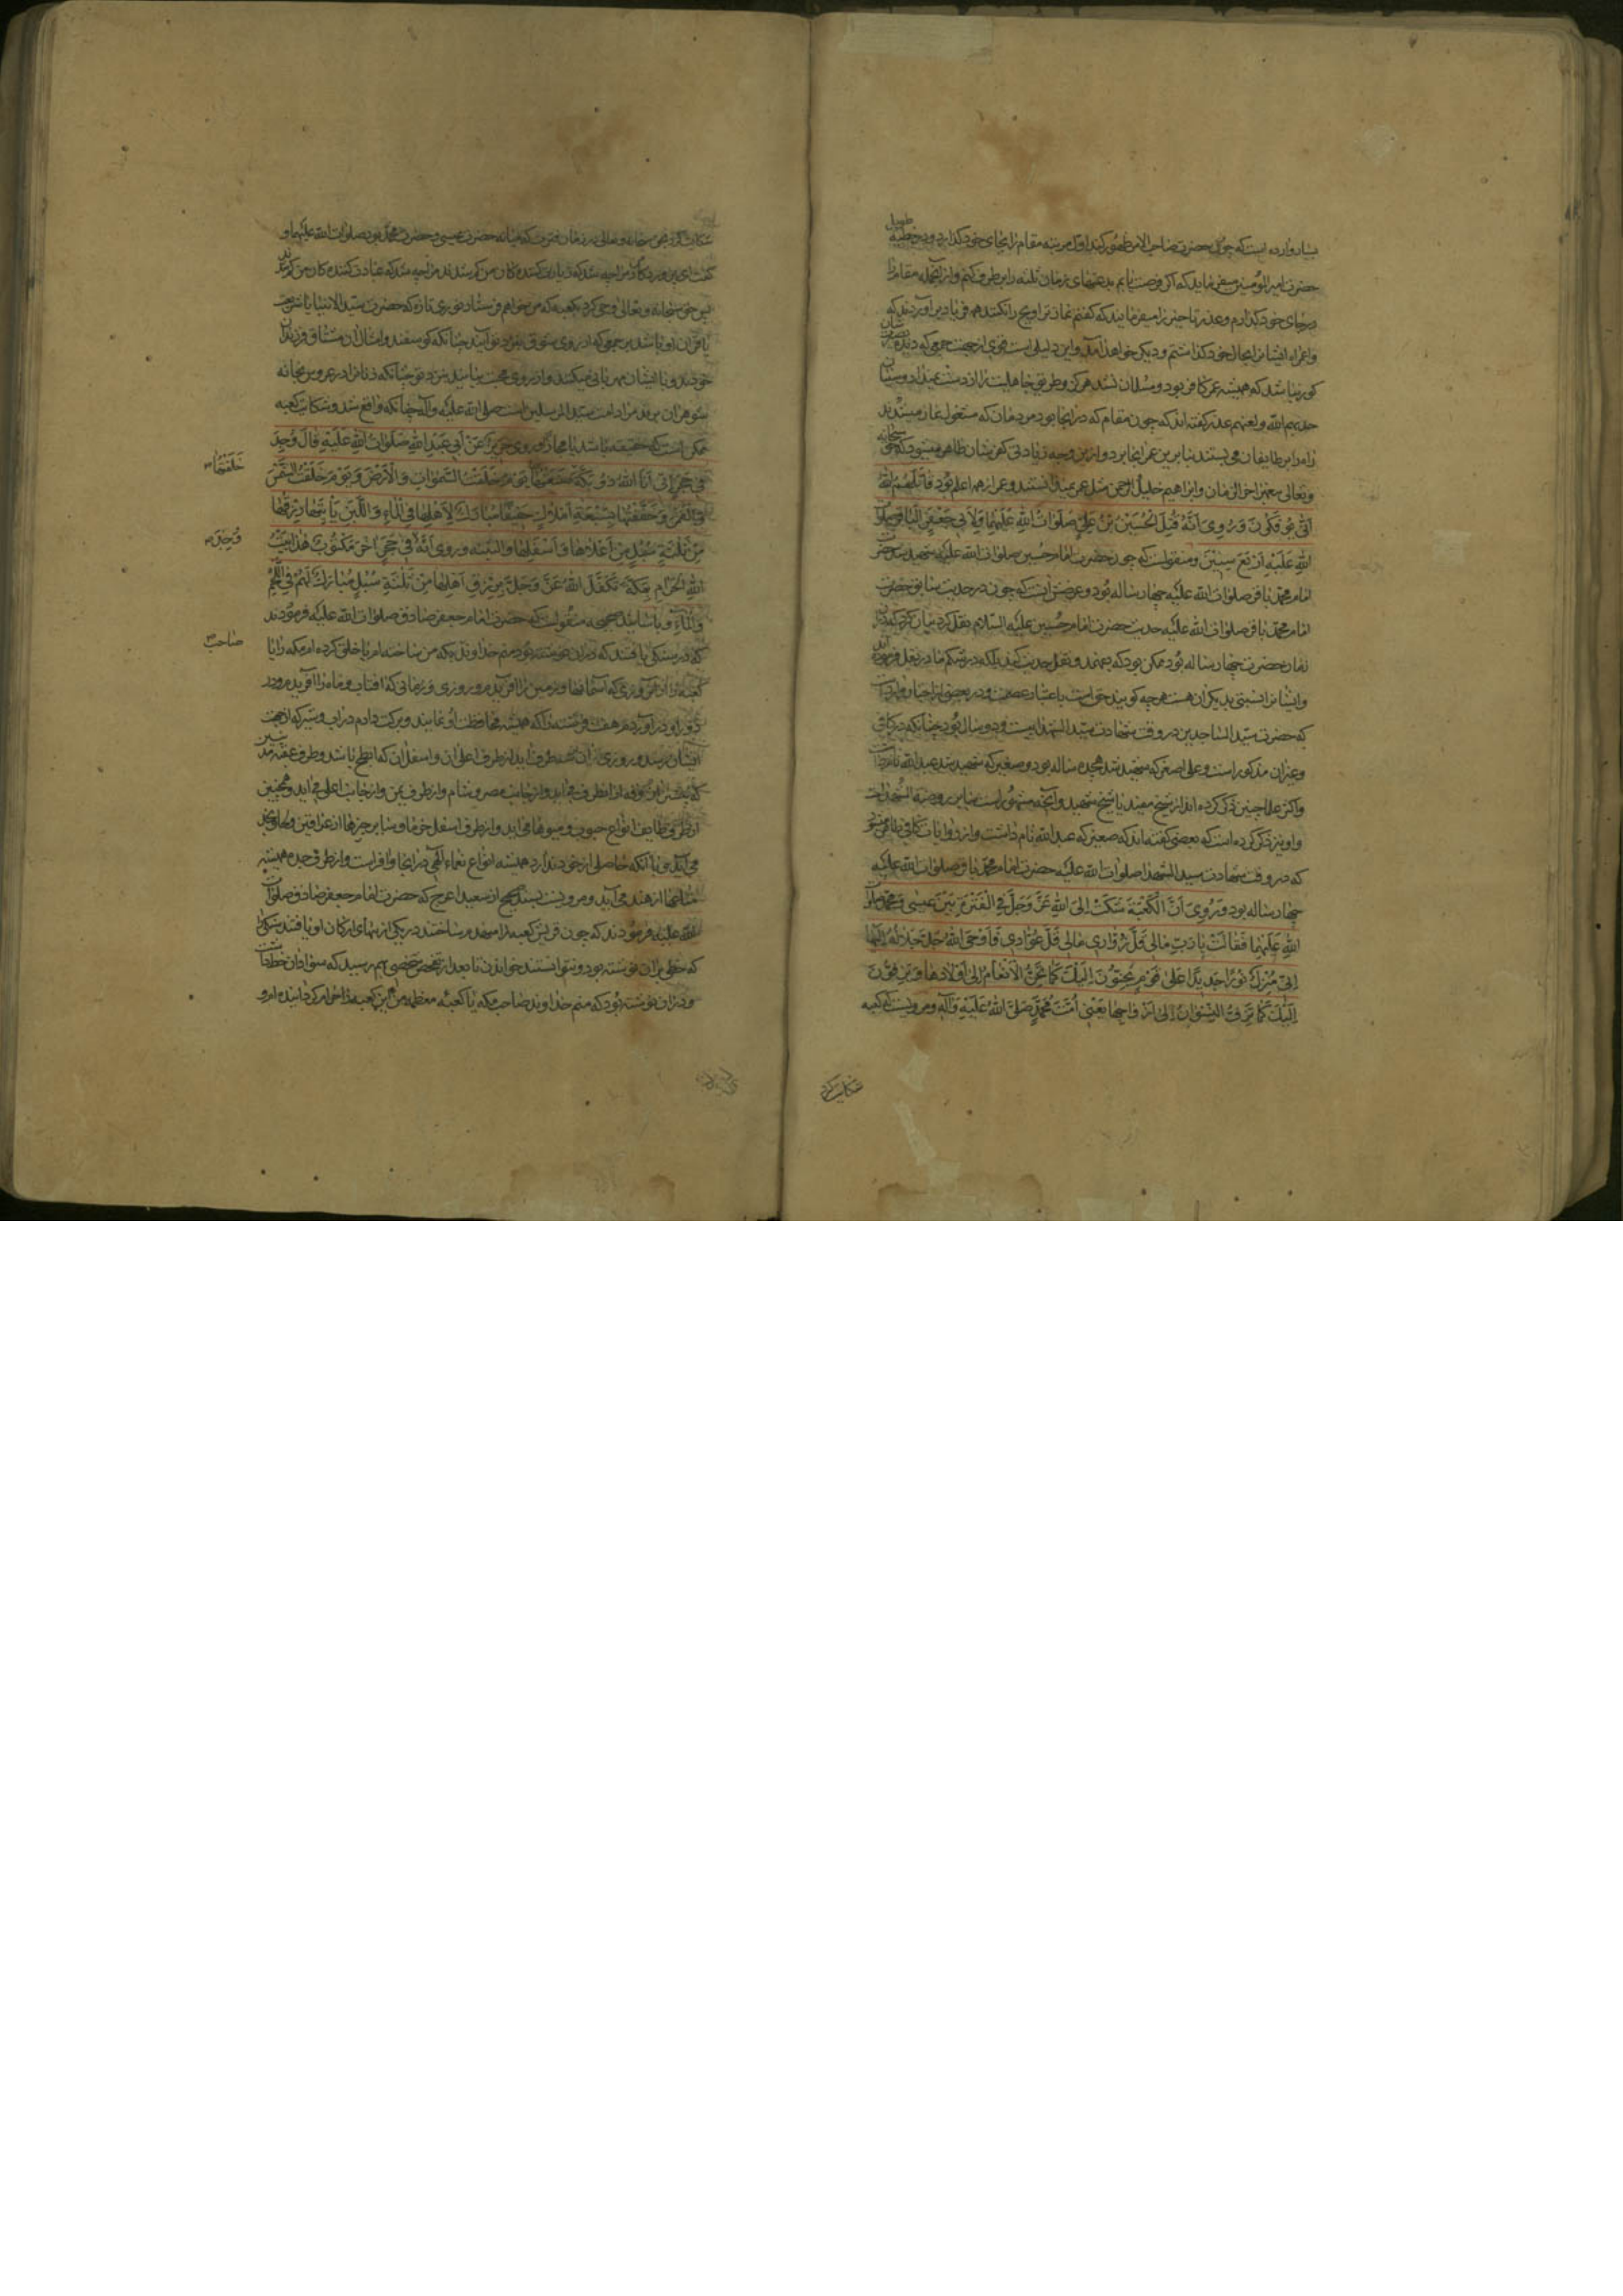 بسیار وارده است که چون حضرت صاحب الامر ظهور کند اول مرتبه مقام را بجای خود گذارد و در خطبه طویل
حضرت امیر المؤمنین میفرماید که اگر فرصت یابم بدعتهای زمان ثلثه را بر طرف کنم و از آنجمله مقام را
بجای خود گذارم و عذر تاخیر را میفرمایند که گفتم نماز تراویح را نکنند همه فریاد بر آوردند که
و اعمراه ایشانرا بحال خود گذاشتم و دیگری خواهد آمد و این دلیلی است قوی از جهت جمعی که دیده بصیرتشان
کور نباشد که همیشه عمر کافر بود و مسلمان نشد هرگز و طریق جاهلیت را از دست نمیداد و سنیان
خذلهم الله و لعنهم عذر گفته اند که چون مقام که در اینجا بود مردمان که مشغول نماز میشدند
راه را بر طایفان می بستند بنابرین عمر اینجا برد و ازین وجه زیادتی کفر ایشان ظاهر میشود که حق سبحانه
و تعالی پیغمبر اخر الزمان و ابراهیم خلیل الرحمن مثل عمر نمیدانستند و عمر از همه اعلم بود قاتلهم الله
انی یؤفکون و روی انه قتل الحسین بن علی صلوات الله علیهما و لابی جعفر الباقر صلوات
الله علیه اربع سنین و منقولست که چون حضرت امام حسین صلوات الله علیه شهید شد حضرت
امام محمد باقر صلوات الله علیه چهار ساله بود و غرض اینست که چون در حدیث سابق حضرت
امام محمد باقر صلوات الله علیه حدیث حضرت امام حسین علیه السلام نقل کرد بیان کرد که در آن
زمان حضرت چهار ساله بود ممکن بود که بفهمند و نقل حدیث کنند بلکه در شکم مادر نقل فرموده اند
و ایشانرا نسبتی بدیگران هست هر چه گویند حق است باعتبار عصمت و در بعضی از اخبار وارد است
که حضرت سید الساجدین در وقت شهادت سید الشهدا بیست و دو سال بود چنانکه در کافی
و غیر آن مذکور است و علی اصغر که شهید شد هجده ساله بود و صغیر که شهید شد عبد الله نام داشت
و اکثر علما چنین ذکر کرده اند از شیخ مفید تا شیخ شهید و آنچه مشهور است بنابر روضة الشهدا است
و او نیز ذکر کرده است که بعضی گفته اند که صغیر که عبد الله نام داشت و از روایات کافی ظاهر میشود
که در وقت شهادت سید الشهدا صلوات الله علیه حضرت امام محمد باقر صلوات الله علیه
چهار ساله بود و روی ان الکعبة شکت الی الله عز و جل فی الفترة بین عیسی و محمد صلوات
الله علیهما فقالت یا رب مالی قل زواری مالی قل عوادی فاوحی الله جل جلاله الیها
انی منزل نورا جدیدا علی قوم یحنون الیک کما تحن الانعام الی اولادها و یزفون
الیک کما تزف النسوان الی ازواجها یعنی امة محمد صلی الله علیه و آله و مرویست که کعبه
شکایت کرد
شکایت کرد بحق سبحانه و تعالی در زمان فترت که میانه حضرت عیسی و حضرت محمد بود صلوات الله علیهما و
گفت ای پروردگار مرا چه شد که زیارت کنندگان من کم شدند مرا چه شد که عیادت کنندگان من کم شدند
پس حق سبحانه و تعالی وحی کرد بکعبه که من خواهم فرستاد نوری تازه که حضرت سید الانبیا یا شریعت
یا قرآن او باشد بر جمعی که از روی شوق بنزد تو آیند چنانکه گوسفند و امثال آن مشتاق فرزندان
خودند و با ایشان مهربانی میکنند و از روی محبت بیایند بنزد تو چنانکه زنانرا در عروس بخانه
شوهران برند مراد امت سید المرسلین است صلی الله علیه و آله چنانکه واقع شد و شکایت کعبه
ممکن است که حقیقه باشد یا مجاز و روی حریز عن ابی عبد الله صلوات الله علیه قال وجد
فی حجر انی انا الله ذو بکة صنعتها یوم خلقت السموات و الارض و یوم خلقت الشمس
خلقتها
و القمر و حففتها بسبعة املاک حفیفا مبارک لاهلها فی الماء و اللبن یاتیها رزقها
من ثلثة سبل من اعلاها و اسفلها و الثنیة و روی انه فی حجر اخر مکتوب هذا بیت
وجد
الله الحرام بمکة تکفل الله عز و جل برزق اهلها من ثلثة سبل مبارک لهم فی اللحم
و الماء و باسانید صحیحه منقولست که حضرت امام جعفر صادق صلوات الله علیه فرمودند
که در سنگی یافتند که در آن نوشته بود منم خداوند بکه من ساخته ام یا خلق کرده ام مکه را یا
صاحب
کعبه را در روزی که آسمانها و زمین را آفریدم و روزی و زمانی که آفتاب و ماه را آفریدم و در
دور او در آوردم هفت فرشته را که همیشه محافظت او نمایند و برکت دادم در آب و شیر که از جهت
ایشان برسد و روزی ایشان از سه طرف آید از طرف اعلای آن و اسفل آن که ابطح باشد و طرف عقبه مدنیین
از طرف طایف انواع حبوب و میوها می آید و از طرف اسفل خرما و سایر چیزها از عراقین و لحسا و نجد
می آید با آنکه حاصلی از خود ندارد همیشه انواع نعماء الهی در اینجا وافر است و از طرف جده همیشه
متاعها از هند می آید و مرویست بسند صحیح از سعید اعرج که حضرت امام جعفر صادق صلوات
الله علیه فرمودند که چون قریش کعبه را منهدم ساختند در یکی از بنهای ارکان او یافتند سنگی را
که خطی بر آن نوشته بود و نتوانستند خواندن تا بعد از تفحص شخصی بهم رسید که سواد آن خط داشت
و در آن نوشته بود که منم خداوند صاحب مکه یا کعبه معظمه من این کعبه را حرام گردانیده ام و